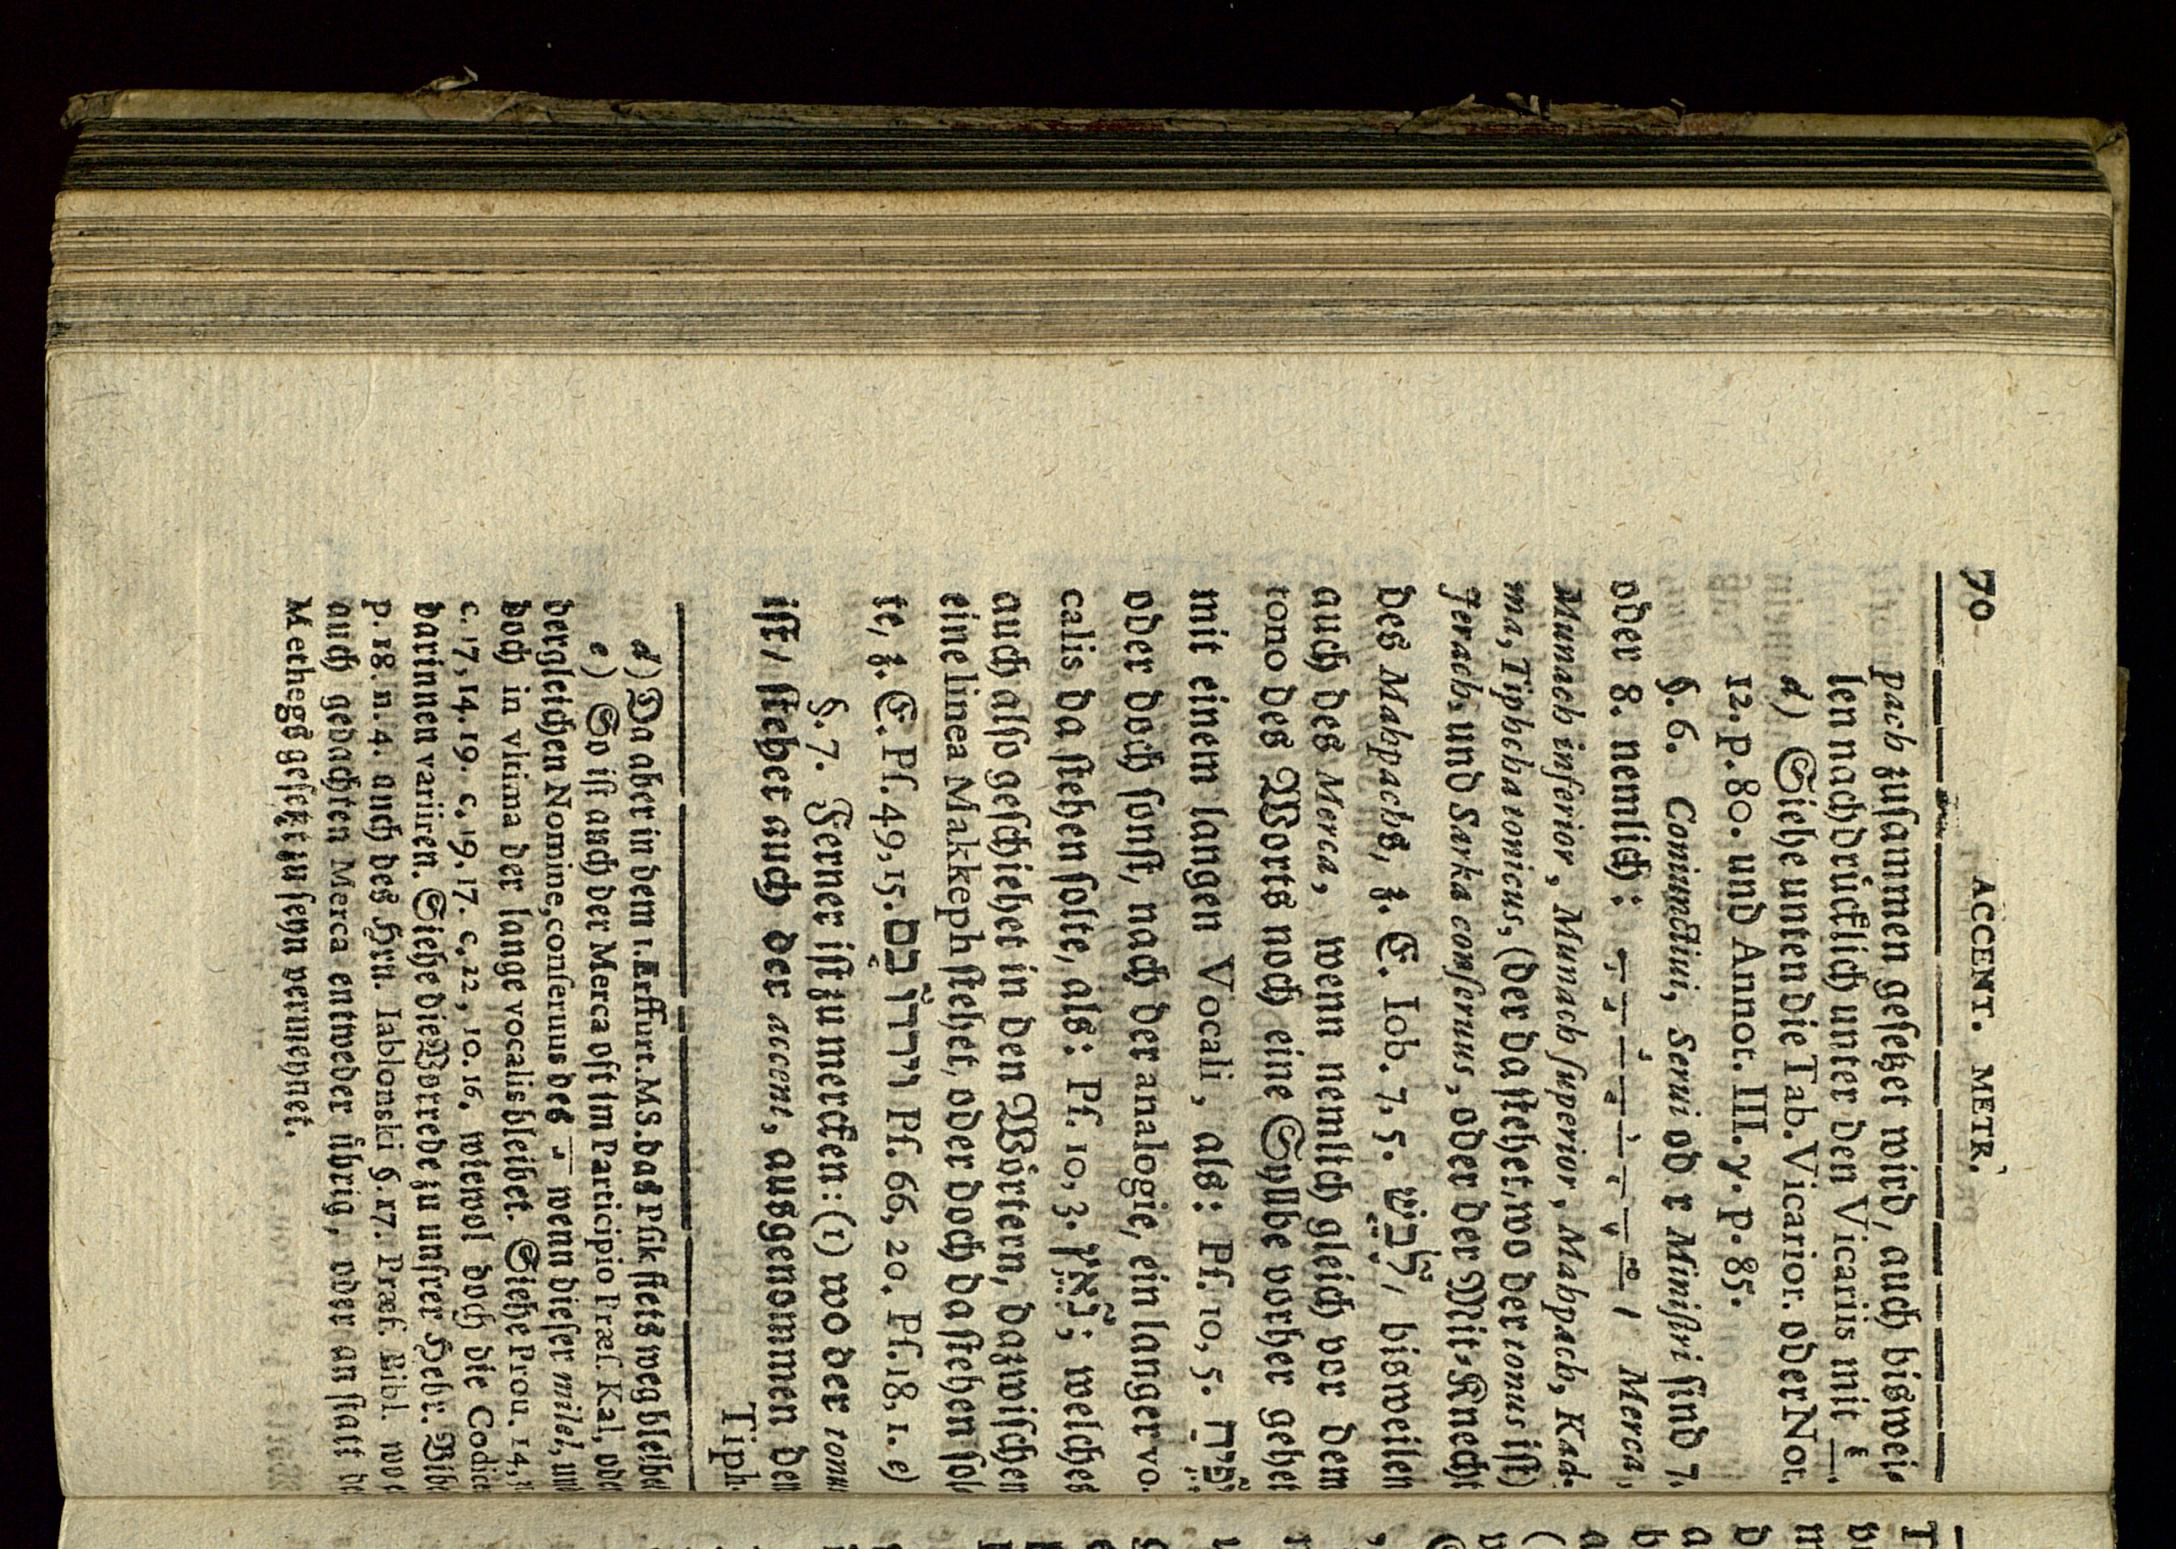 70 ACCENT. METR.
pach zuſammen geſetzet wird, auch biswei-
len nachdrücklich unter den Vicariis mit
d) Siehe unten die Tab. Vicarior. oder Not.
12. p. 80. und Annot. III. γ. p. 85.
§. 6. Coniunctiui, Serui od r Miniſtri ſind 7,
oder 8. nemlich: Merca,
Munach inferior, Munach ſuperior, Mahpach, Kad-
ma, Tiphcha tonicus, (der da ſtehet, wo der tonus iſt)
Jerach, und Sarka conſeruus, oder der Mit-Knecht
des Mahpachs, z. E. Iob. 7, 5. לָבַשׁ, bisweilen
auch des Merca, wenn nemlich gleich vor dem
tono des Worts noch eine Sylbe vorher gehet
mit einem langen Vocali, als: Pſ. 10, 5. יָפִיחַ
oder doch ſonſt, nach der analogie, ein langer vo-
calis da ſtehen ſolte, als: Pſ. 10, 3. נִאֵץ; welches
auch alſo geſchiehet in den Wörtern, dazwiſchen
eine linea Makkeph ſtehet, oder doch da ſtehen ſol-
te, z. E. Pſ. 49, 15. וַיִּרְדּוּ בָם Pſ. 66, 20. Pſ. 18, 1. e)
§. 7. Ferner iſt zu mercken: (1) wo der tonus
iſt / ſtehet auch der accent, ausgenommen den
Tiph-
d) Da aber in dem 1. Erffurt. MS. das Pſik ſtets weg bleibe
e) So iſt auch der Merca oft im Participio Præſ. Kal, ode
dergleichen Nomine, conſeruus des wenn dieſer milel, un
doch in vltima der lange vocalis bleibet. Siehe Prou. 14,
c. 17, 14. 19. c. 19, 17. c. 22, 10. 16. wiewol doch die Codice
darinnen variiren. Siehe die Vorrede zu unſrer Hebr. Bibe
p. 18. n. 4. auch des Hrn. Iablonski §. 17. Præf. Bibl. wo
auch gedachten Merca entweder übrig, oder an ſtatt
Methegs geſetzt zu ſeyn vermeynet.